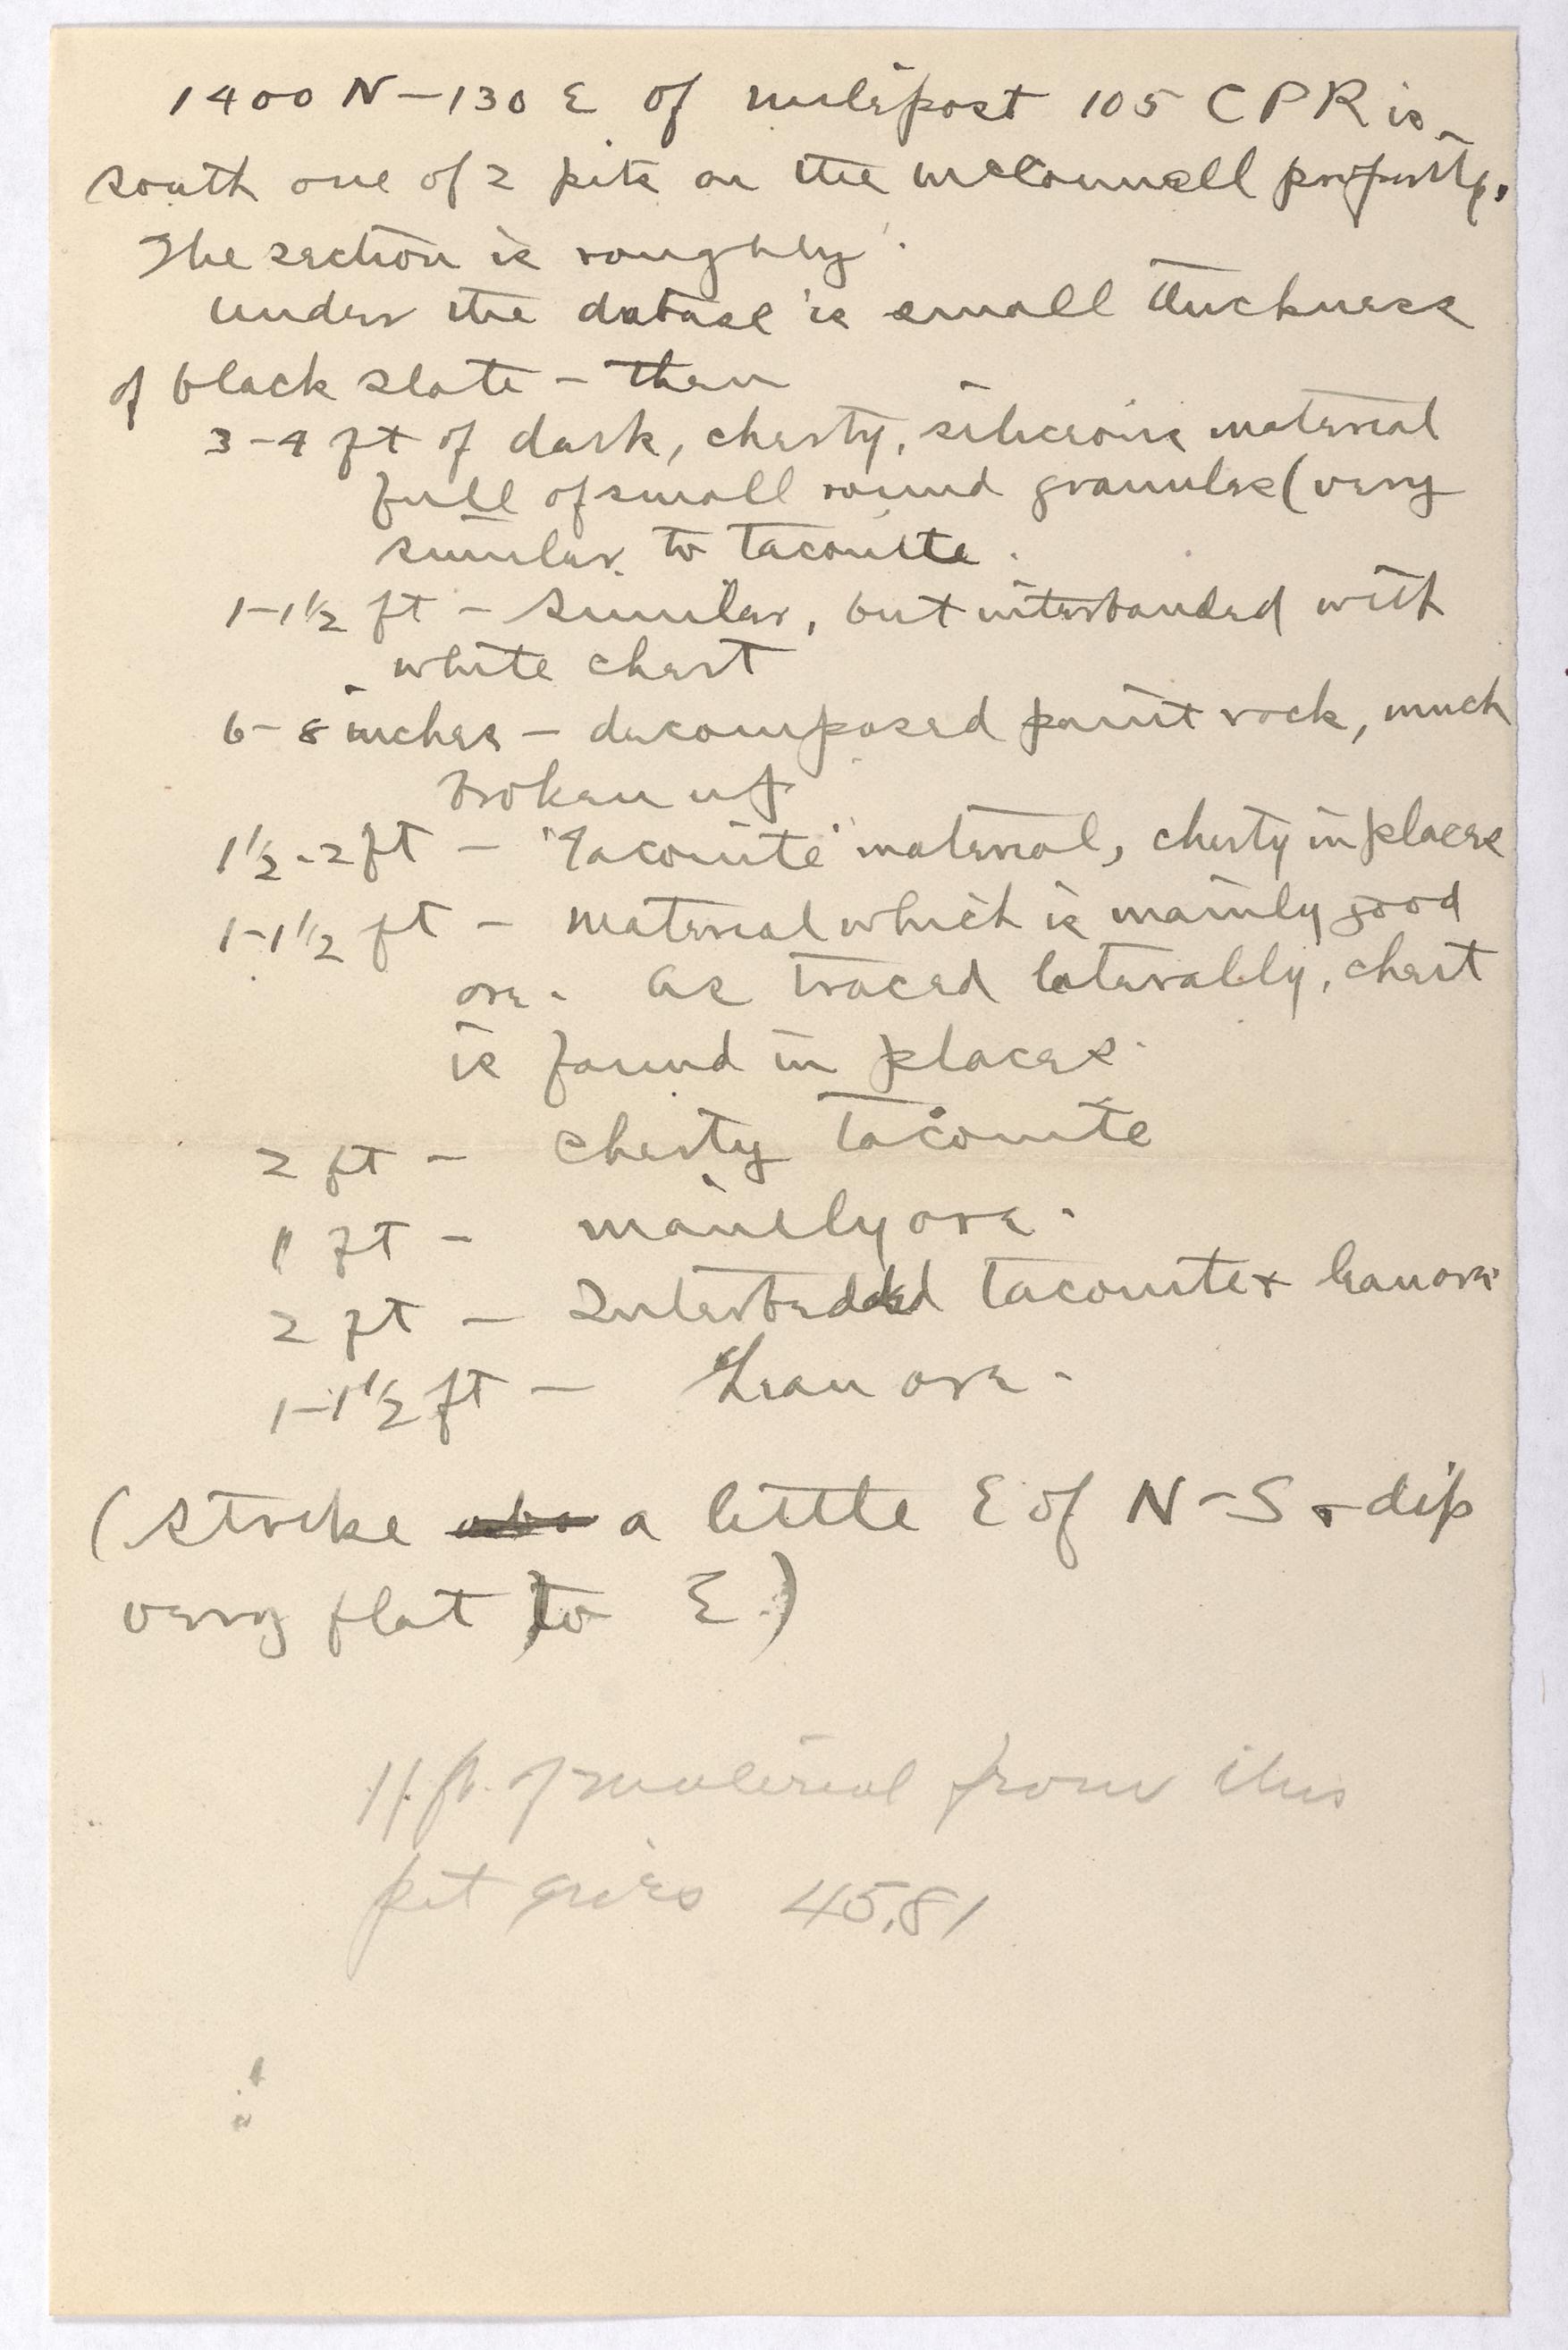 1400 N – 130 E of milepost 105 CPR is
south one of 2 pits on the McConnell property.
The section is roughly.
Under the diabase is small thickness
of black slate – then
3–4 ft of dark, cherty, siliceous material
full of small round granules (very
similar to taconite.
1–1½ ft – Similar, but interbanded with
white chert
6–8 inches – decomposed paint rock, much
broken up
1½–2 ft – "Taconite" material, cherty in places
1–1½ ft – Material which is mainly good
ore. As traced laterally, chert
is found in places.
2 ft – Cherty taconite
1 ft – mainly ore.
2 ft – Interbedded taconite + lean ore
1–1½ ft – Lean ore.
(Strike a little E of N–S + dip
very flat to E)
11 ft. of material from this
pit gives 45.81